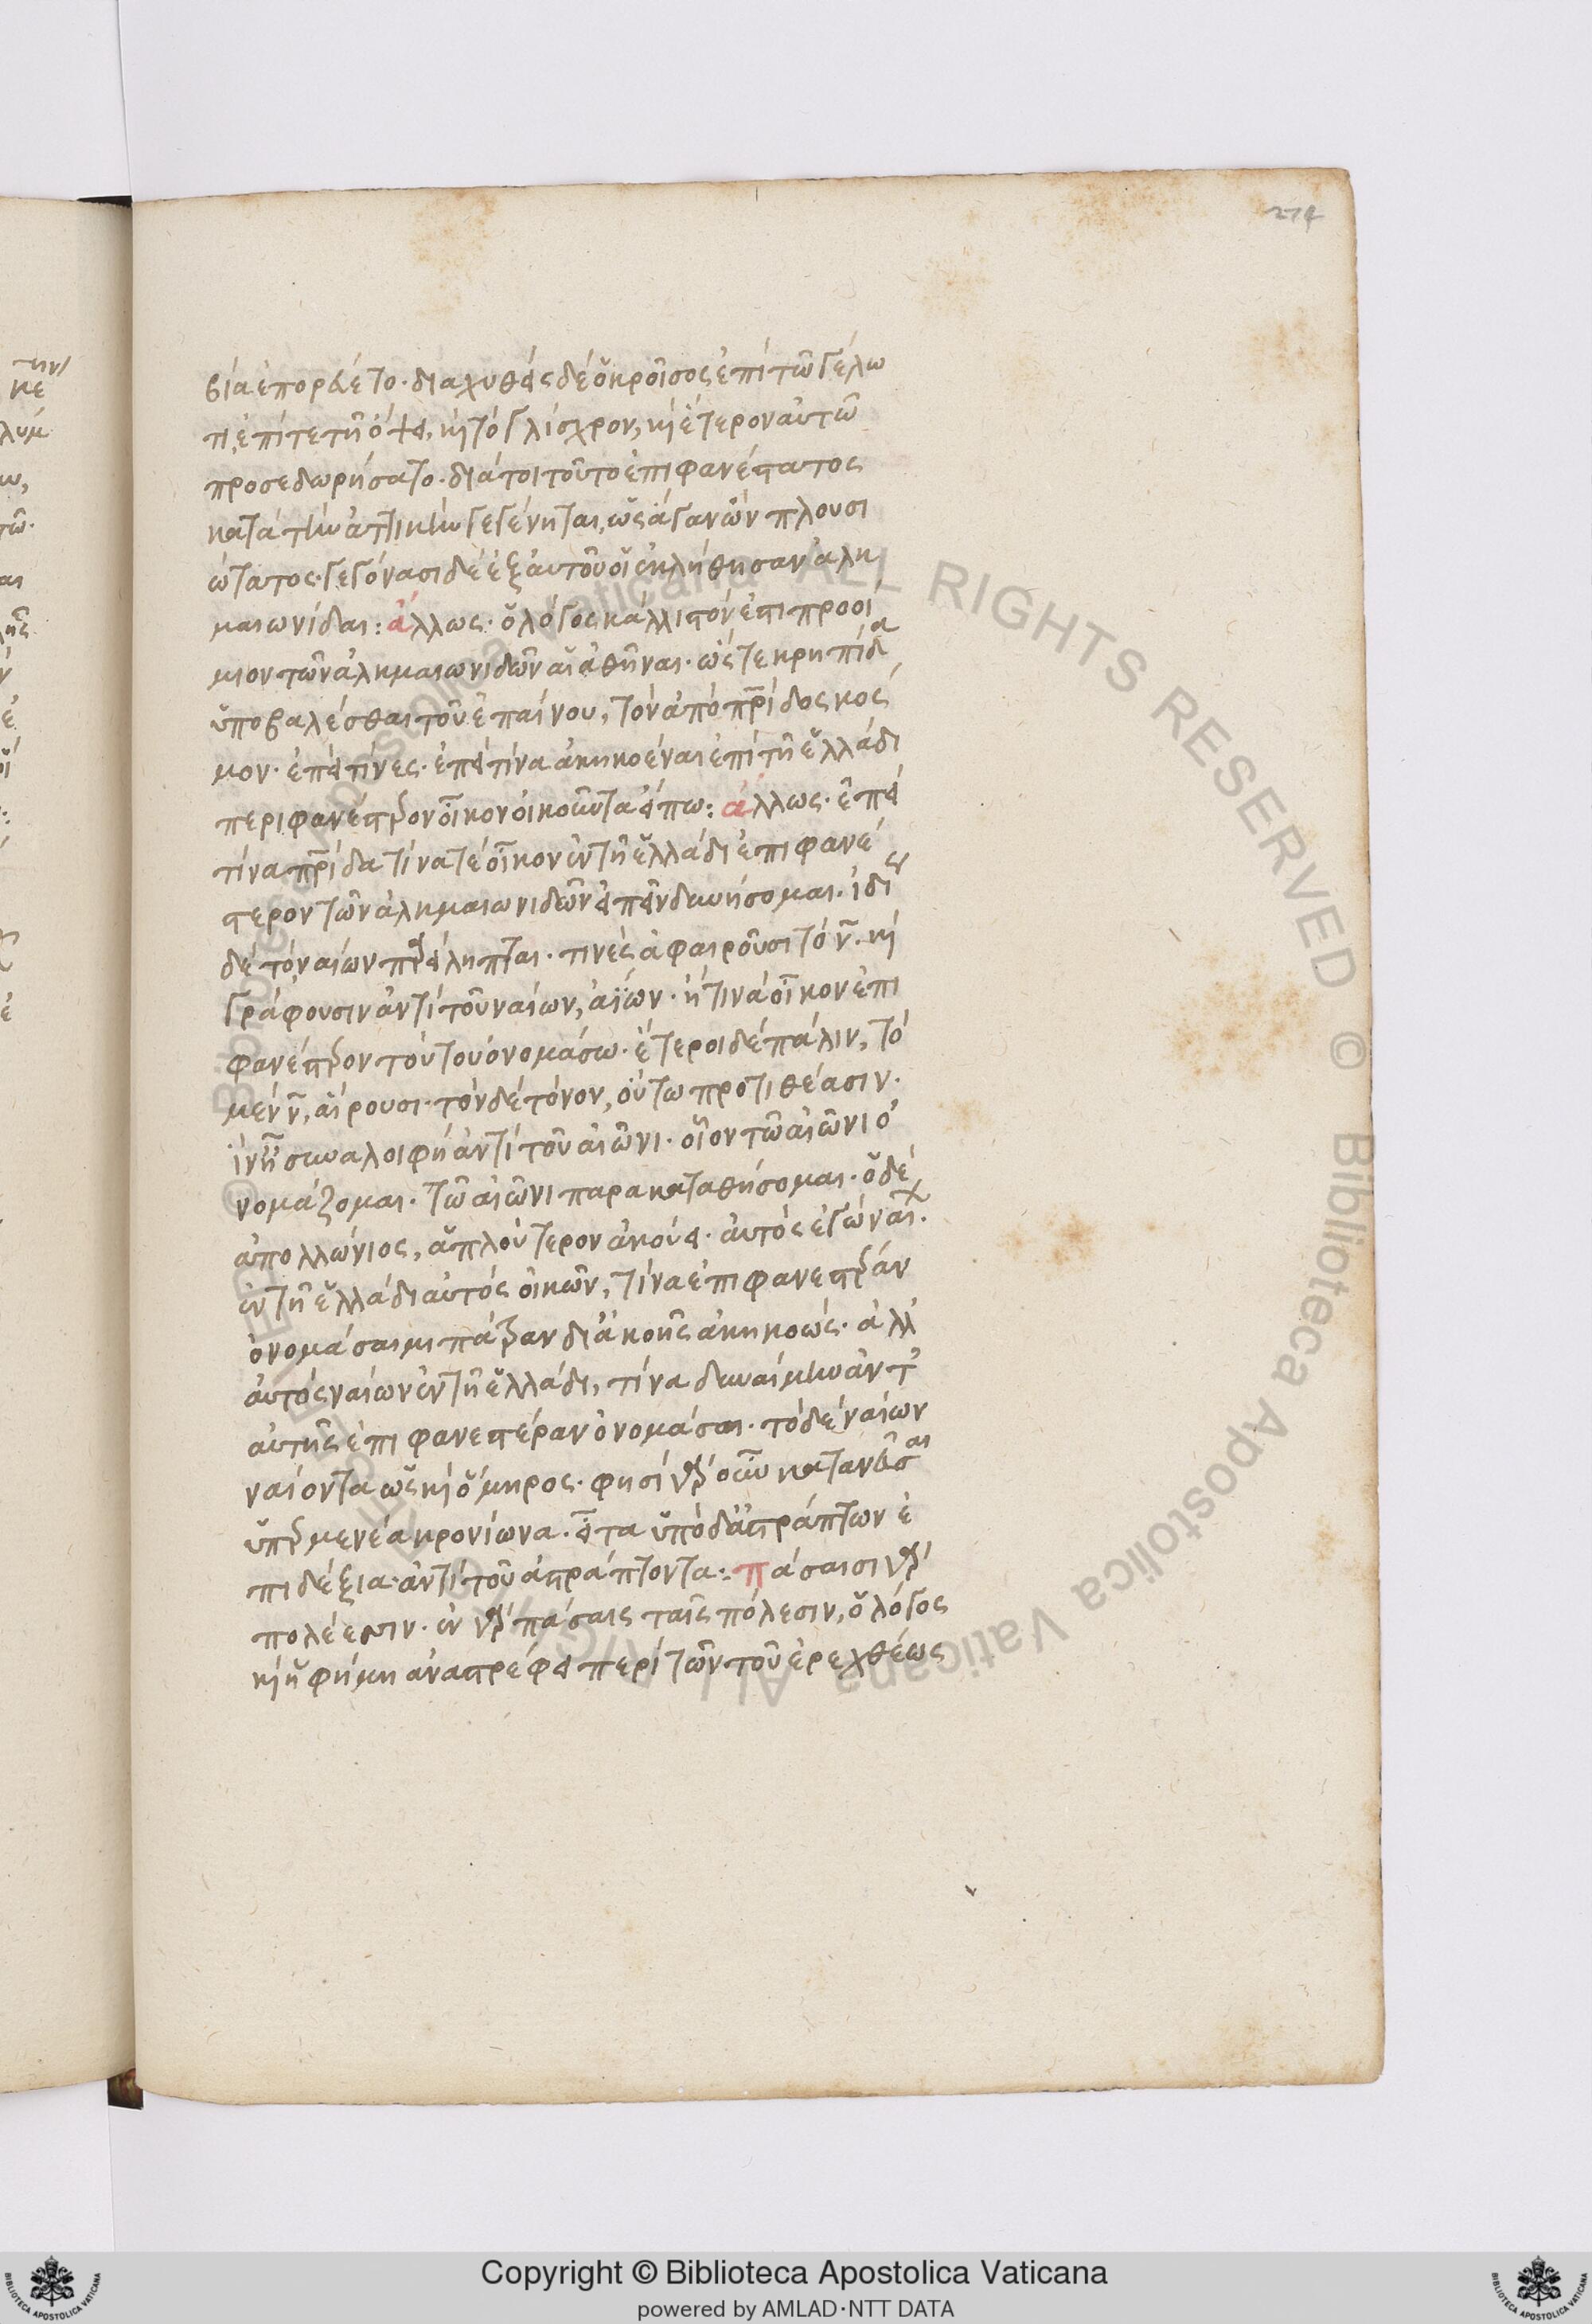 274
βία ἐπορεύετο· διαχυθεὶς δὲ ὁ κροῖσος ἐπὶ τῶ γέλω
τι, ἐπί τε τῆ ὄψει, κὴ τὸ γλίσχρον, κὴ ἕτερον αὐτῶ
προσεδωρήσατο· διὰ τοι τοῦτο ἐπιφανέστατος
κατὰ τὴν ἀττικὴν γεγένηται, ὡς ἀγανῶν πλουσι
ώτατος· γεγόνασι δὲ ἐξ αὐτοῦ οἳ ἐκλήθησαν ἀλκ
μαιωνίδαι: ἄλλως· ὁ λόγος κάλλιστόν ἐστι προοί
μιον τῶν ἀλκμαιωνιδῶν αἱ ἀθῆναι· ὥστε κρηπῖδα
ὑποβαλέσθαι τοῦ ἐπαίνου, τὸν ἀπὸ πρίδος κόσ
μον· ἐπεὶ τίνες· ἐπεὶ τίνα ἀκηκοέναι ἐπὶ τῆ ἑλλάδι
περιφανέστερον οἶκον οἰκοῦντα εἴπω: ἄλλως· ἐπεὶ
τίνα πρίδα τίνα τὲ οἶκον ἐν τῆ ἑλλάδι ἐπιφανέ
στερον τῶν ἀλκμαιωνιδῶν εἰπεῖν δυνήσομαι· ἰδί
δὲ τὸ ναίων παρείληπται· τινὲς ἀφαιροῦσι τὸ ν̄· κὴ
γράφουσιν ἀντὶ τοῦ ναίων, ἀΐων· ἢ τινὰ οἶκον ἐπι
φανέστερον τούτου ὀνομάσω· ἕτεροι δὲ πάλιν, τὸ
μὲν ν̄, αἴρουσι· τὸν δὲ τόνον, οὕτω προτιθέασιν·
ἵν' ἦ συναλοιφὴ ἀντὶ τοῦ αἰῶνι· οἷον τῶ αἰῶνι ὀ
νομάζομαι· τῶ αἰῶνι παρακαταθήσομαι· ὁ δὲ
ἀπολλώνιος, ἁπλούστερον ἀκούει· αὐτὸς ἐγὼ ναί.
ἐν τῆ ἑλλάδι αὐτὸς οἰκῶν, τίνα ἐπιφανεστέραν
ὀνομάσαιμι πάτραν δι' ἀκοῆς ἀκηκοώς· ἀλλ'
αὐτὸς ναίων ἐν τῆ ἑλλάδι, τίνα δυναίμην ἂν τ'
αὐτῆς ἐπιφανεστέραν ὀνομάσαι· τὸ δὲ ναίων
ναίοντα ὡς κὴ ὅμηρος· φησὶ γὰρ οὖν κατανεῦσαι
ὑπερμενέα κρονίωνα· εἶτα ὑποδ' ἀστράπτων ἐ
πιδέξια· ἀντὶ τοῦ ἀστράπτοντα: πάσαισι γὰρ
πολέεσσιν· ἐν γὰρ πάσαις ταῖς πόλεσιν, ὁ λόγος
κὴ ἡ φήμη ἀναστρέφει περὶ τῶν τοῦ ἐρεχθέως
Copyright © Biblioteca Apostolica Vaticana
powered by AMLAD·NTT DATA